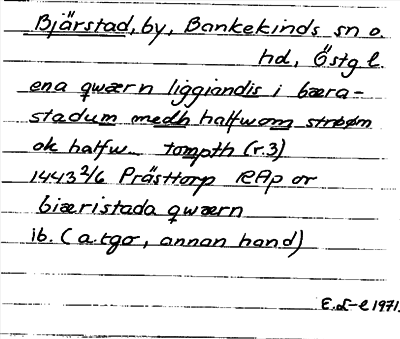 Bjärstad, by, Bankekinds sn o.
hd, Östgl.
ena qwærn liggiandis i bæra-
stadum medh halfwom strøøm
ok halfw tompth (r.3)
1443 2/6 Prästtorp RAp or
biæristada qwærn
ib. (a.tgo, annan hand)
E.L-e 1971.